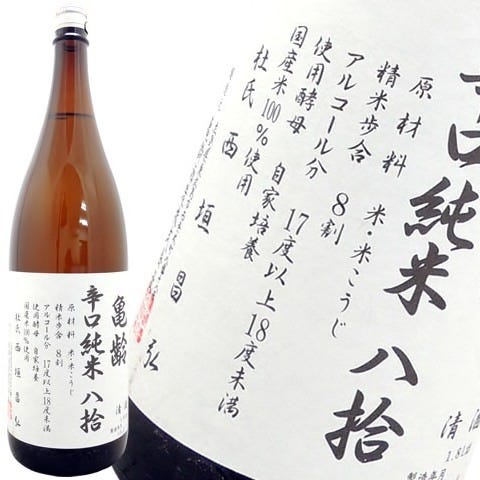 亀齢
辛口純米 八拾
原材料 米・米こうじ
精米歩合 8割
アルコール分 17度以上18度未満
使用酵母 自家培養
国産米100%使用
杜氏 西垣昌弘
清酒
口純米 八拾
原材料 米・米こうじ
精米歩合 8割
アルコール分 17度以上18度未満
使用酵母 自家培養
国産米100%使用
杜氏 西垣昌弘
清酒
1.8L
製造年月